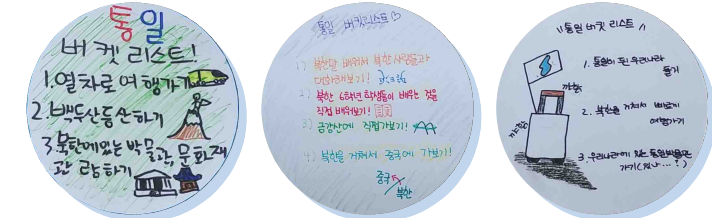 통일
버킷리스트!
1. 열차로 여행가기
2. 백두산등산하기
3. 북한에있는 박물관, 문화재
관람하기
통일 버킷리스트♡
1) 북한말 배워서 북한사람들과
대화해보기!
2) 북한 6학년 학생들이 배우는 것을
직접 배워보기!
3) 금강산에 직접가보기!
4) 북한을 거쳐서 중국에 가보기!
중국
북한
"통일 버킷 리스트"
1. 통일이 된 우리나라
돌기
2. 북한을 거쳐서 빠르게
여행가기
3. 우리나라에 있는 통일박물관